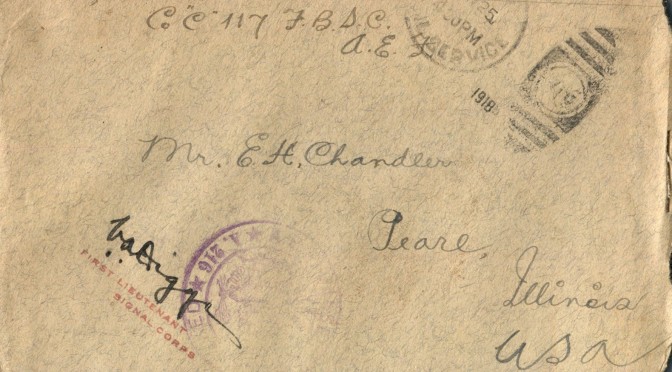 Co. "C" 117 F.B.S.C.
A.E.F.
25
PM
SERVICE
1918
Mr. E.H. Chandler
Pearl,
Illinois
USA
A.216
FIRST LIEUTENANT
SIGNAL CORPS